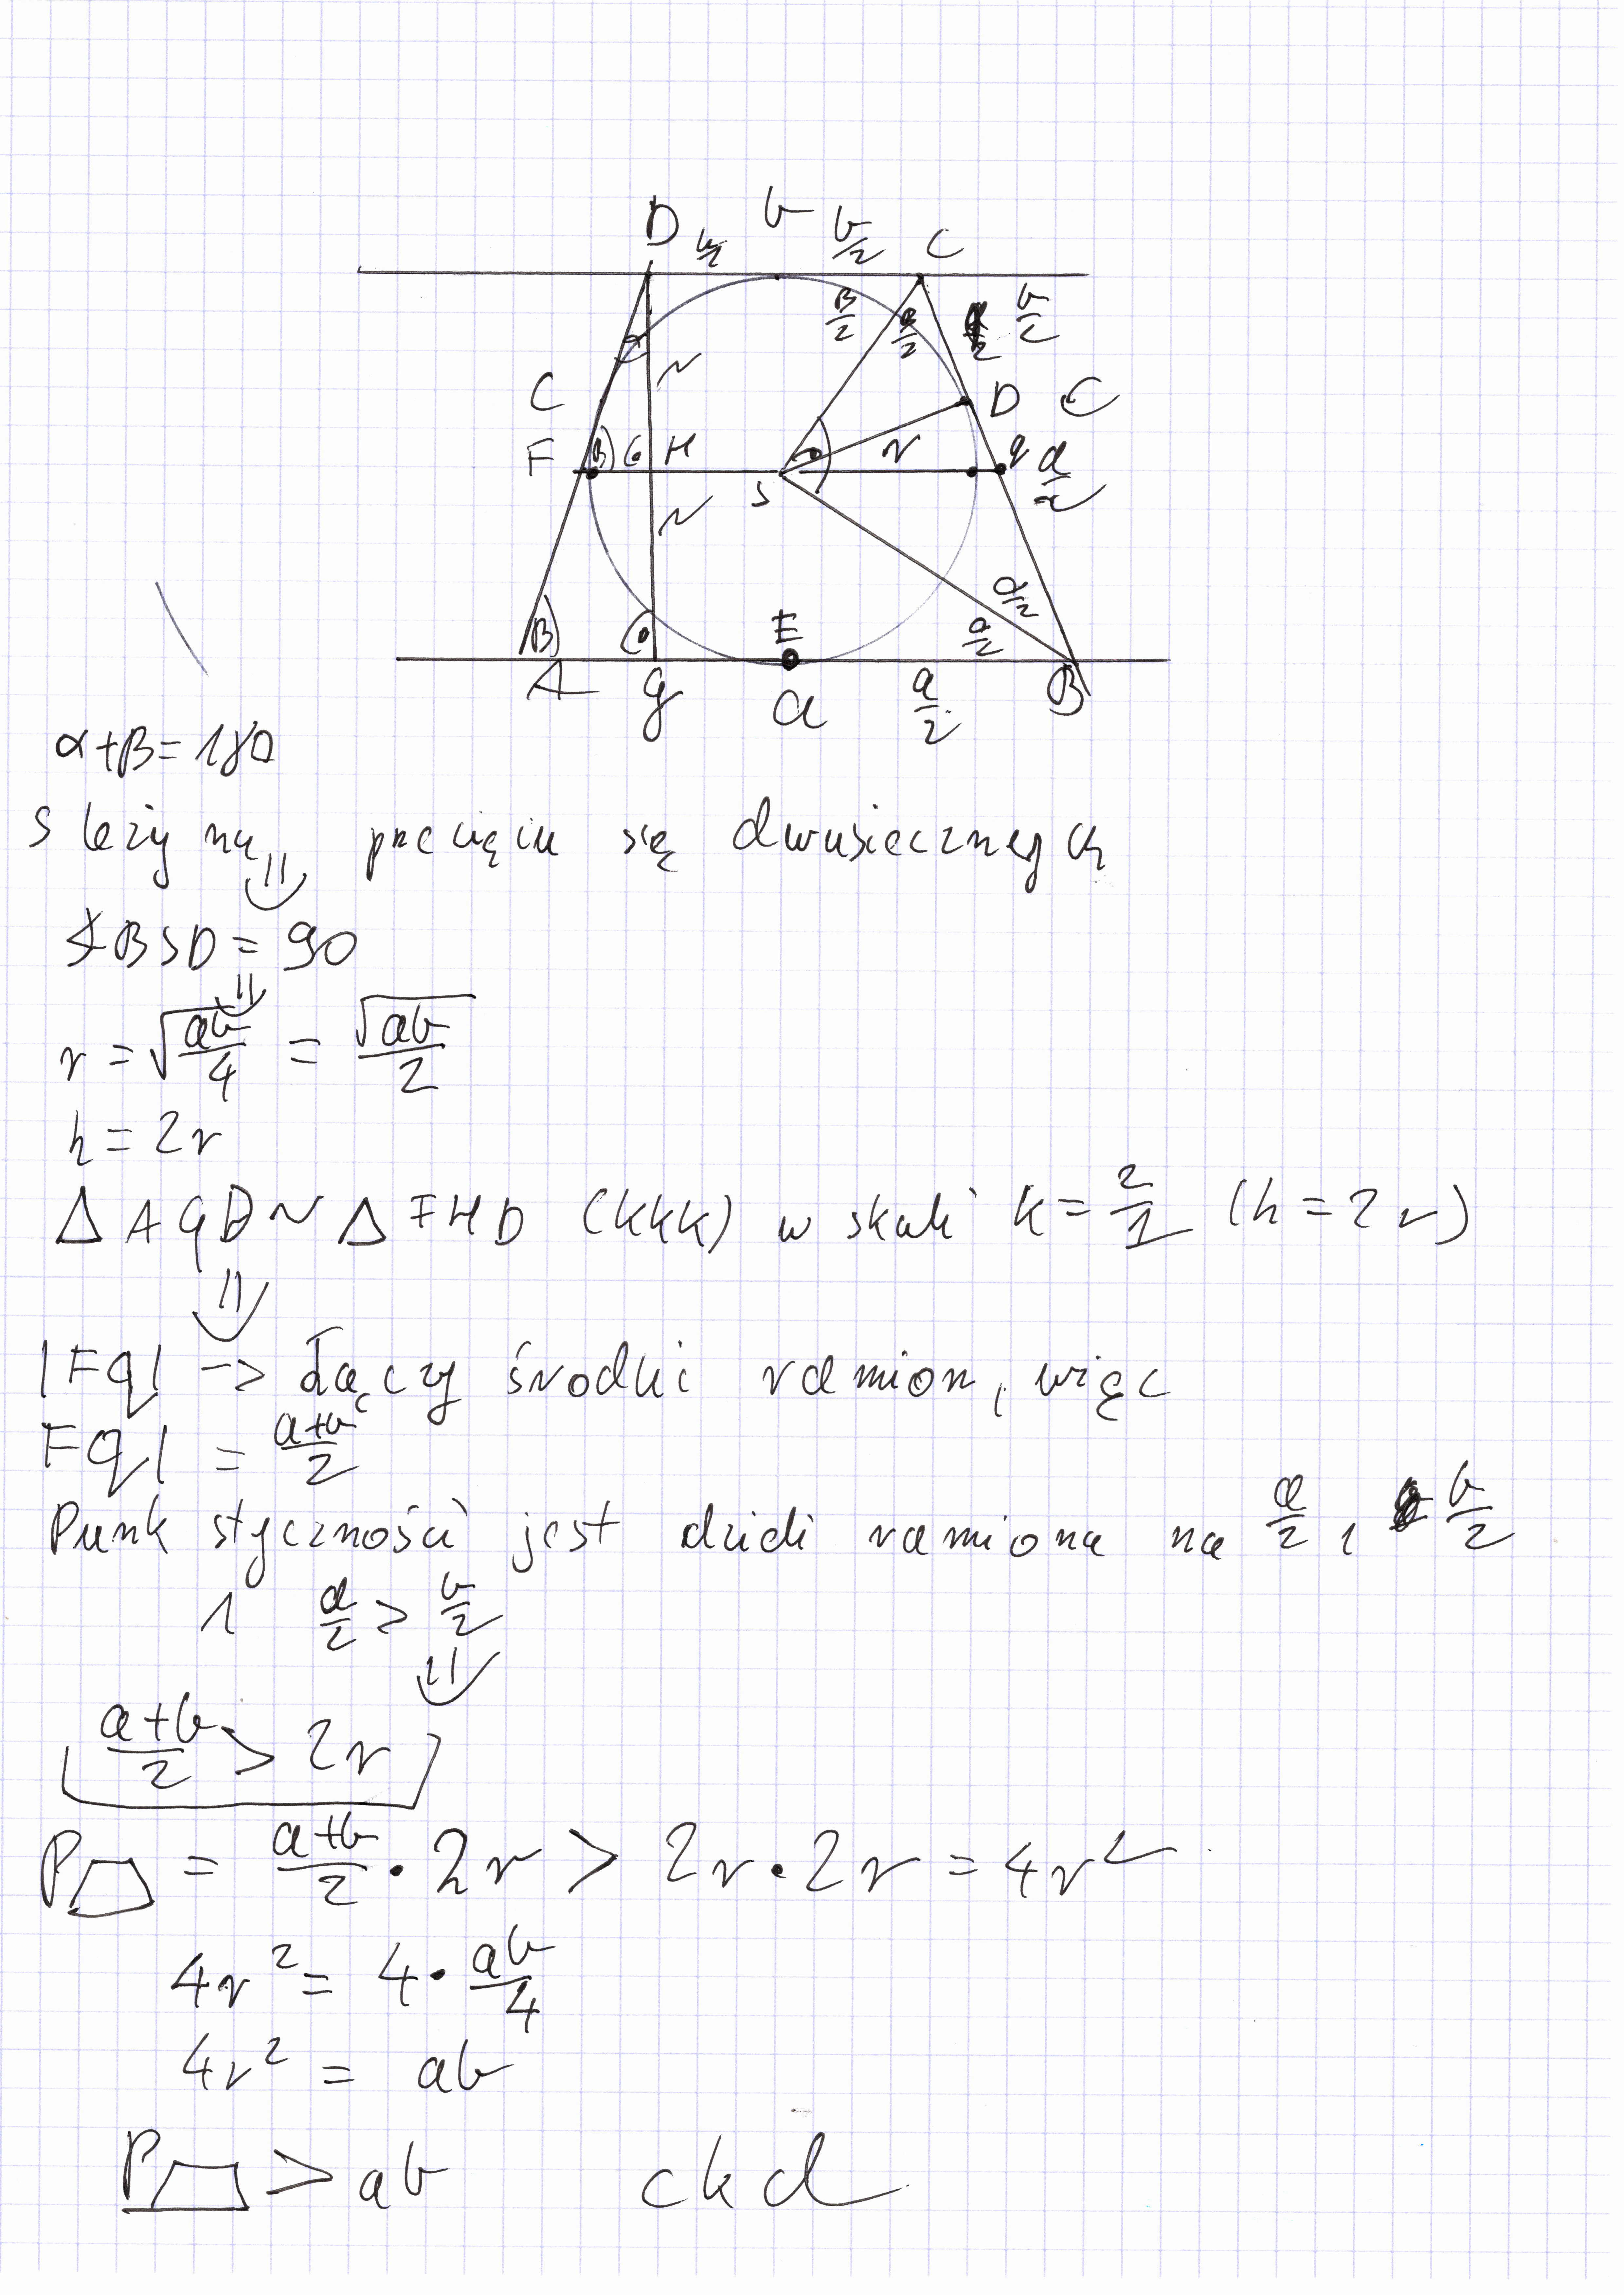 D b/2 b b/2 C
β/2 β/2 b/2
C r D C
F β H r q a/2
S r
α/2
β E α/2
A g a a/2 B
α+β=180
S leży na przecięciu się dwusiecznych
∡BSD = 90
r = √(ab/4) = √ab/2
h = 2r
Δ AGD ~ Δ FHD (kkk) w skali k = 2/1 (h = 2r)
|Fq| -> Łączy środki ramion, więc
Fq| = a+b/2
Punk styczności jest dzieli ramiona na a/2 i b/2
1 a/2 > b/2
a+b/2 > 2r
P = a+b/2 · 2r > 2r · 2r = 4r²
4r² = 4 · ab/4
4r² = ab
P > ab ckd